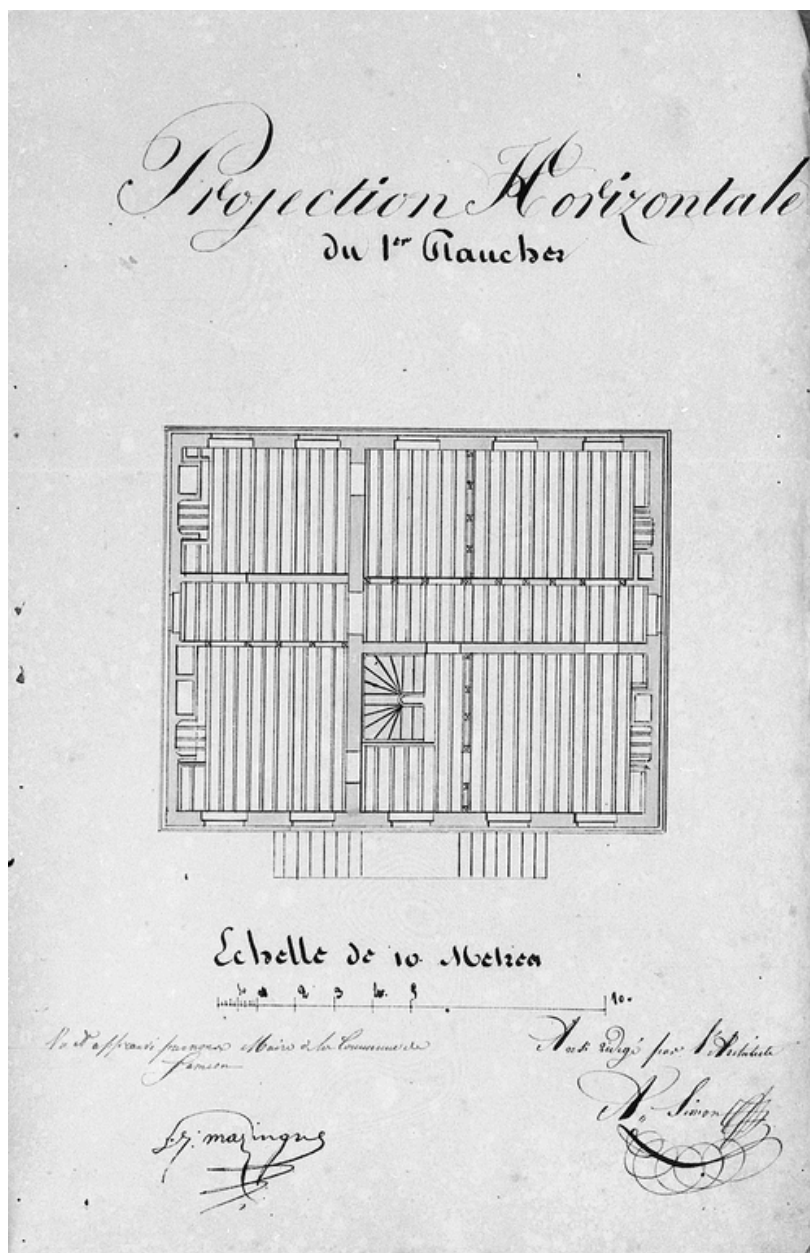 Projection Horizontale
du 1er Plancher
Echelle de 10 Metres
1 2 3 4 5 10
Vu et approuvé par nous Maire de la Commune de
Ainsi rédigé par l'Architecte
A. Simon